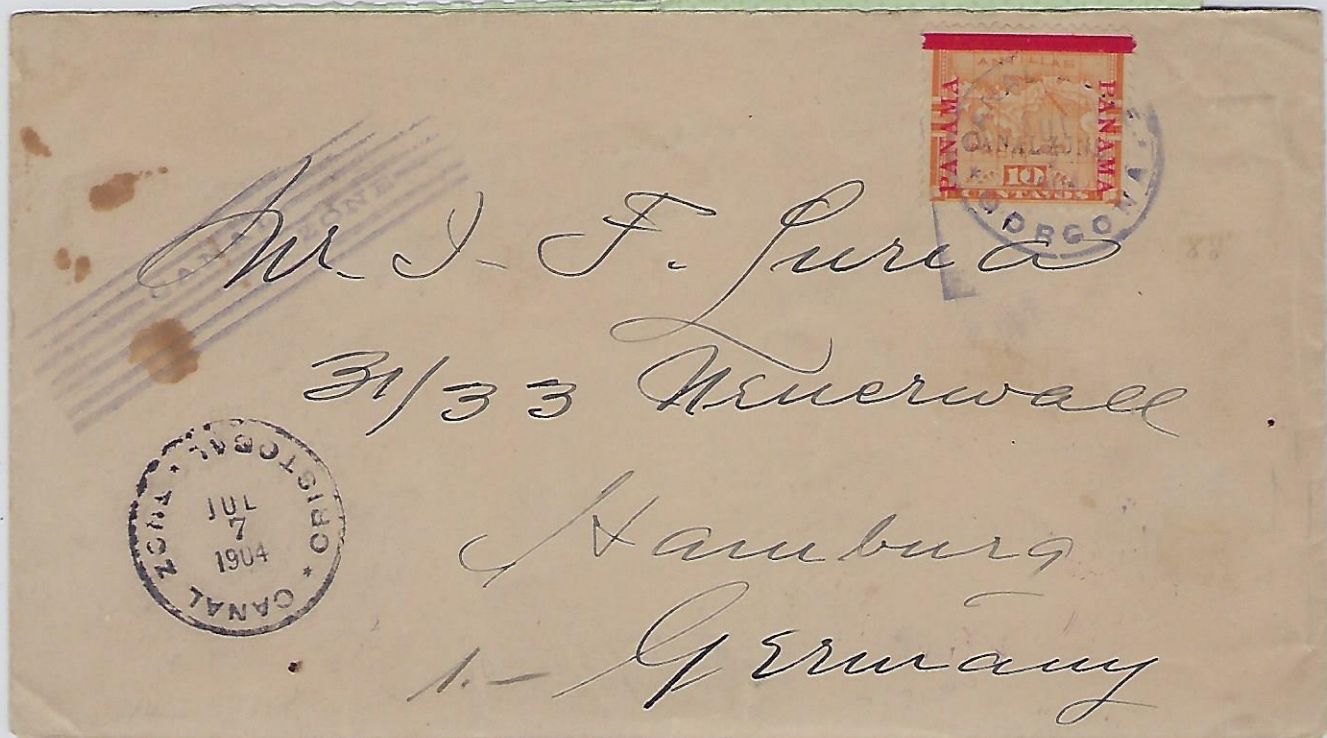 ANTILLAS
PANAMA
PANAMA
CANAL ZONE
10
CENTAVOS
JUL
GORGONA
CANAL
ZONE
Mr. I. F. Luria
31/33 Neuerwall
Hamburg
Germany
1.-
CRISTOBAL
JUL
7
1904
CANAL ZONE
88